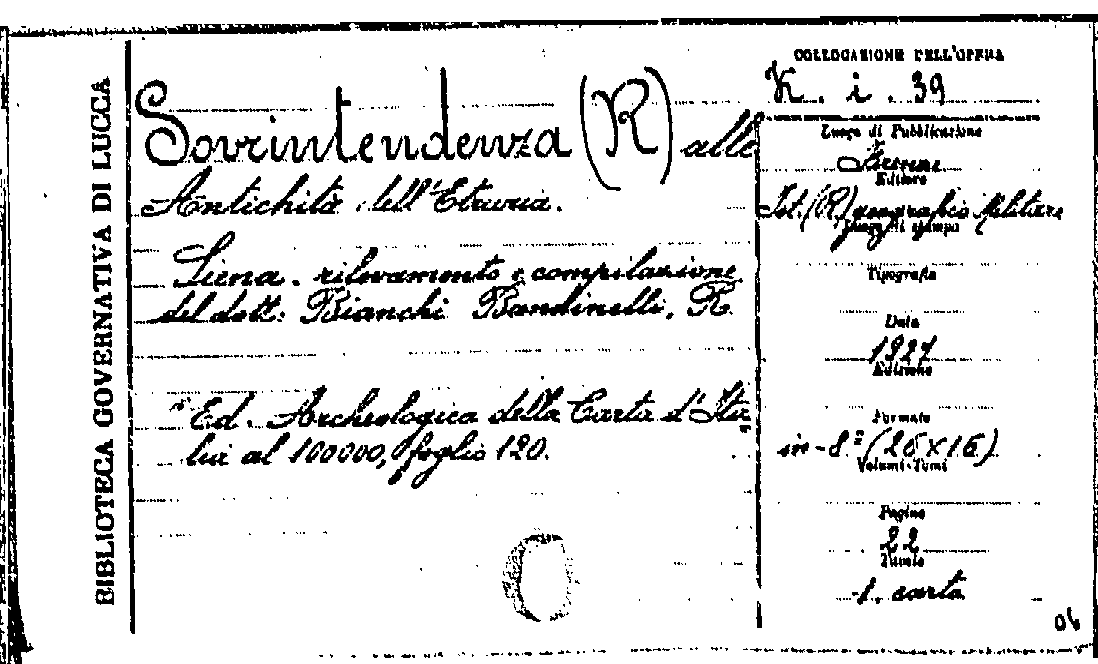 BIBLIOTECA GOVERNATIVA DI LUCCA
Sovrintendenza (R) alle
Antichità dell'Etruria.
Siena. rilevamento e compilazione
del dott: Bianchi Bandinelli, R.
Ed. Archeologica della Carta d'Ita
lia al 100000, foglio 120.
COLLOCAZIONE DELL'OPERA
K. i. 39
Luogo di Pubblicazione
Firenze
Editore
Ist. (R) geografico Militare
Luogo di stampa
Tipografia
Data
1927
Edizione
Formato
in-8º (26x16)
Volumi-Tomi
Pagine
22
Tavole
1. carta
06